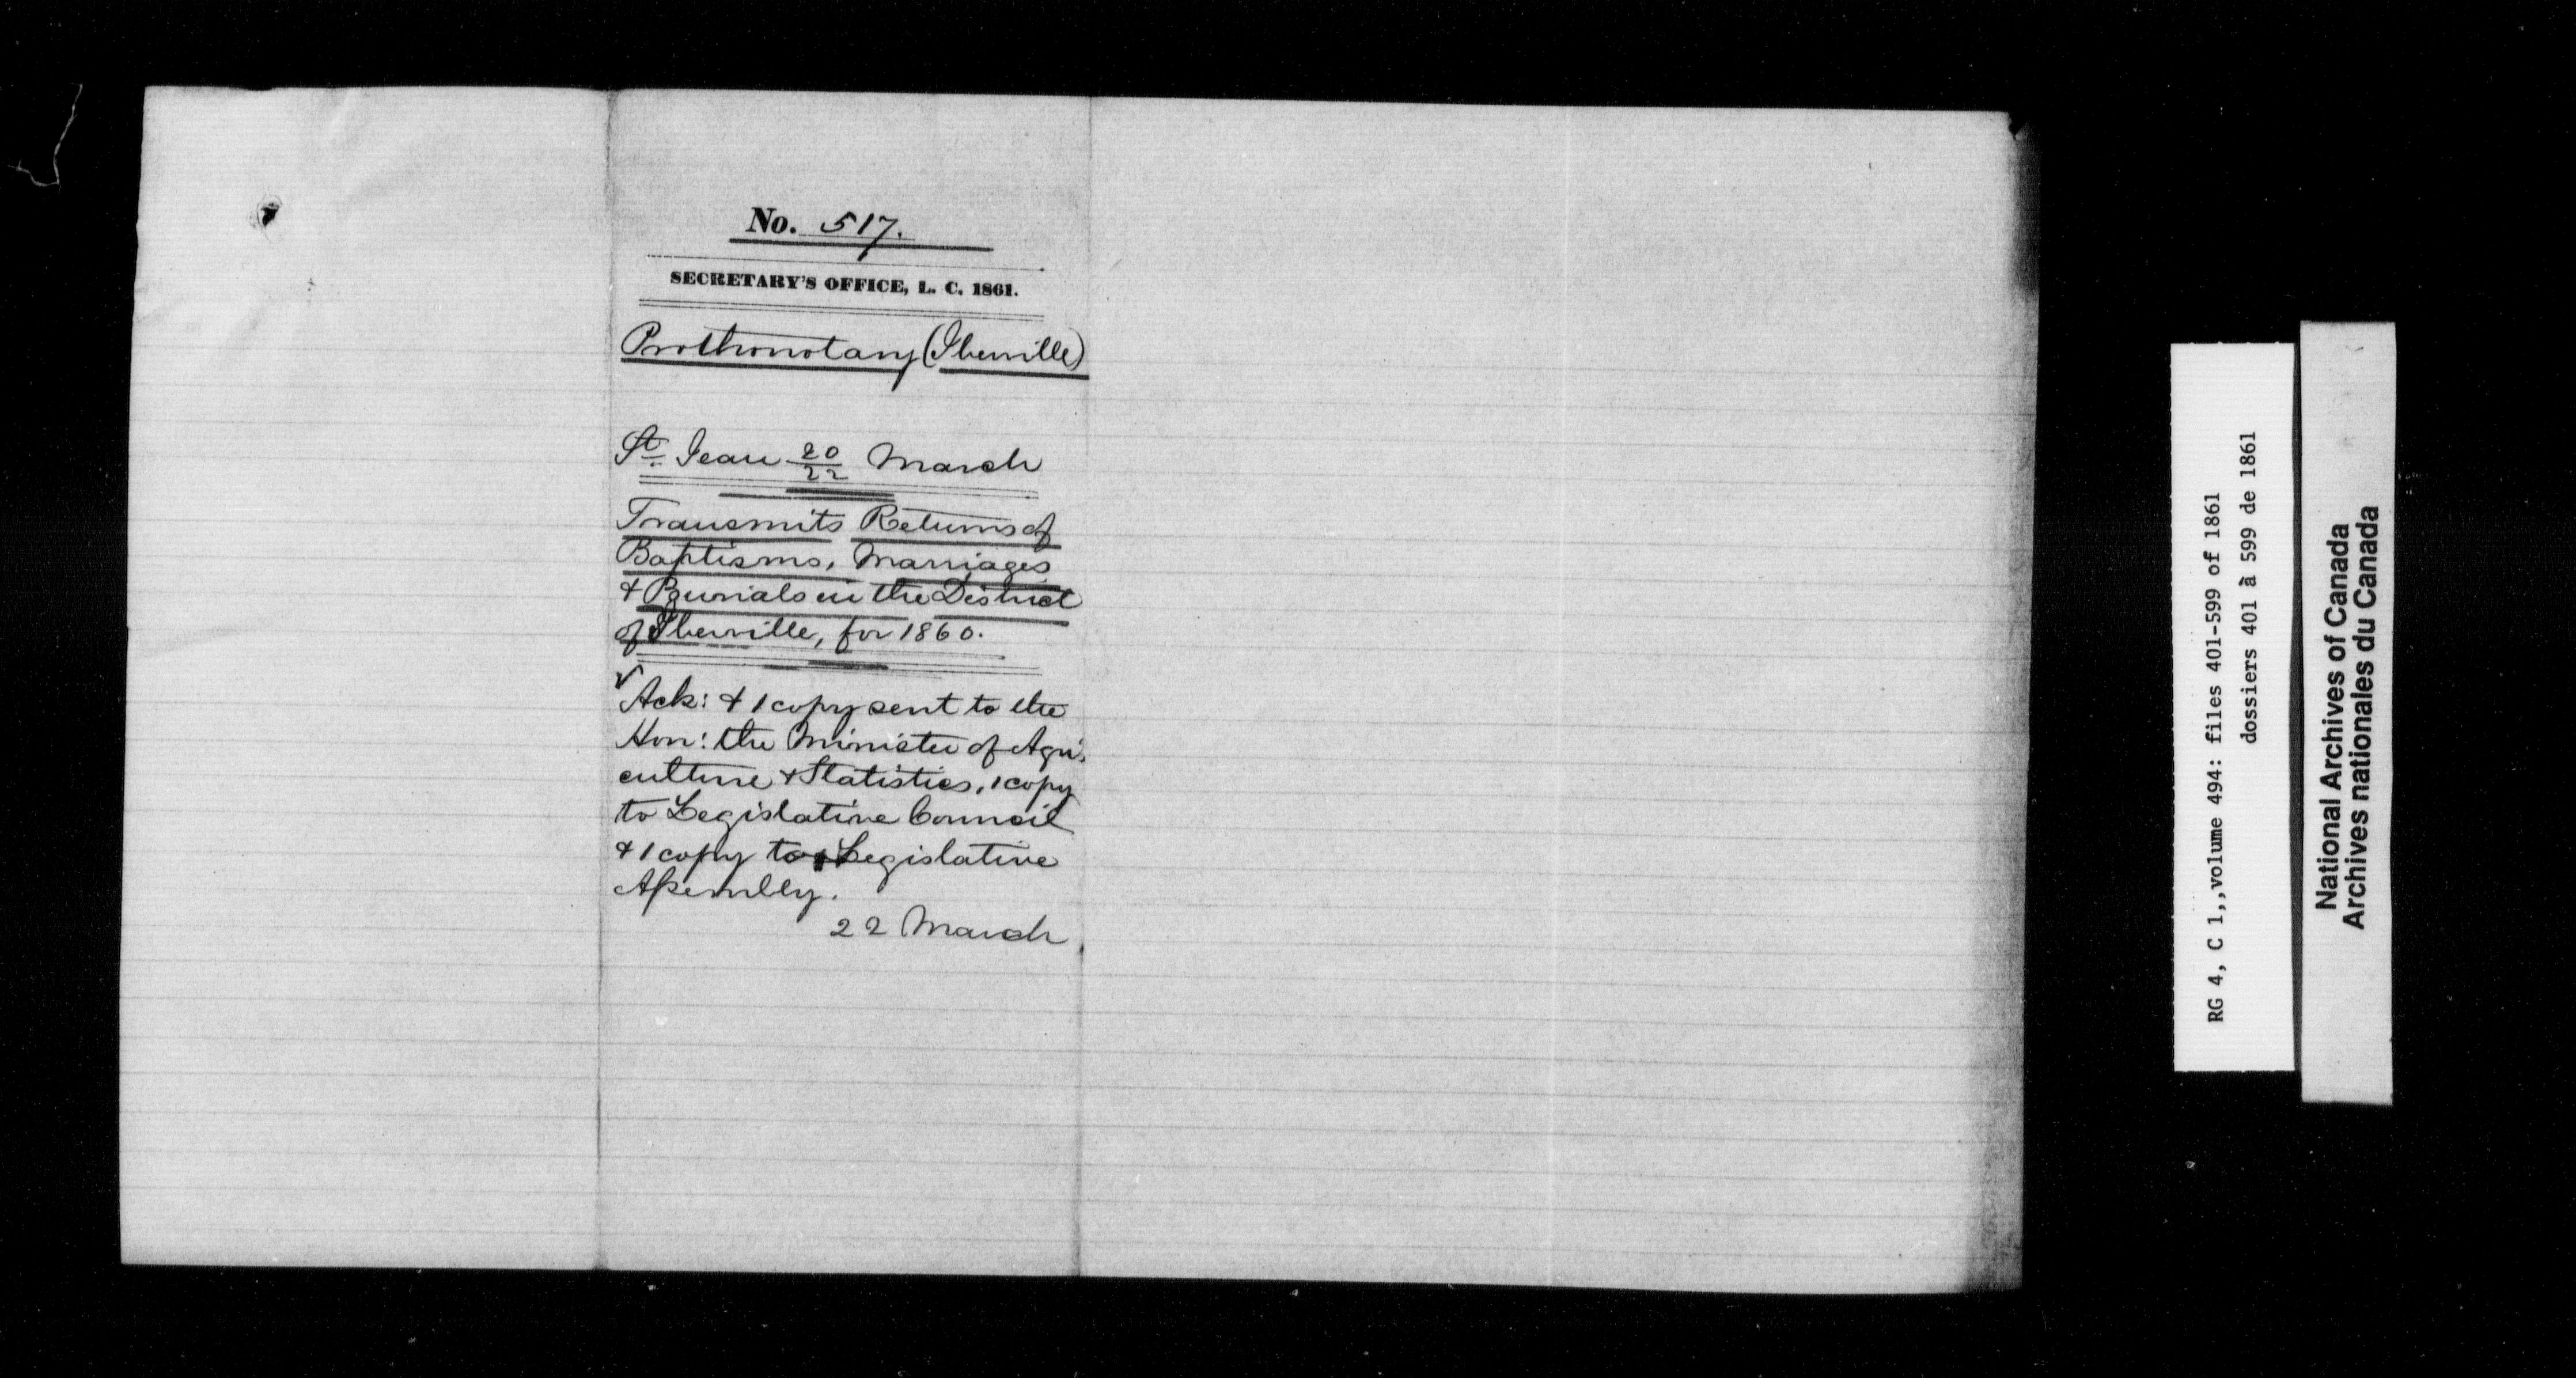 No. 517.
SECRETARY'S OFFICE, L. C. 1861.
Prothonotary (Iberville)
St. Jean 20/22 March
Transmits Returns of
Baptisms, Marriages
& Burials in the District
of Iberville, for 1860.
√
Ack: & 1 copy sent to the
Hon: the Minister of Agri-
culture & Statistics, 1 copy
to Legislative Council
& 1 copy to Legislative
Assembly.
22 March
RG 4, C 1,,volume 494: files 401-599 of 1861
dossiers 401 à 599 de 1861
National Archives of Canada
Archives nationales du Canada